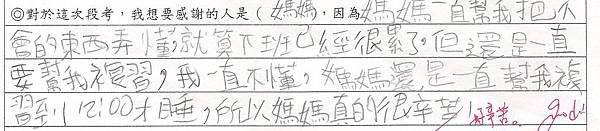 ◎對於這次段考，我想要感謝的人是（媽媽，因為媽媽一直幫我把不
會的東西弄懂，就算下班已經很累了，但還是一直
要幫我複習，我一直不懂，媽媽還是一直幫我複
習到12:00才睡，所以媽媽真的很辛苦！好辛苦。